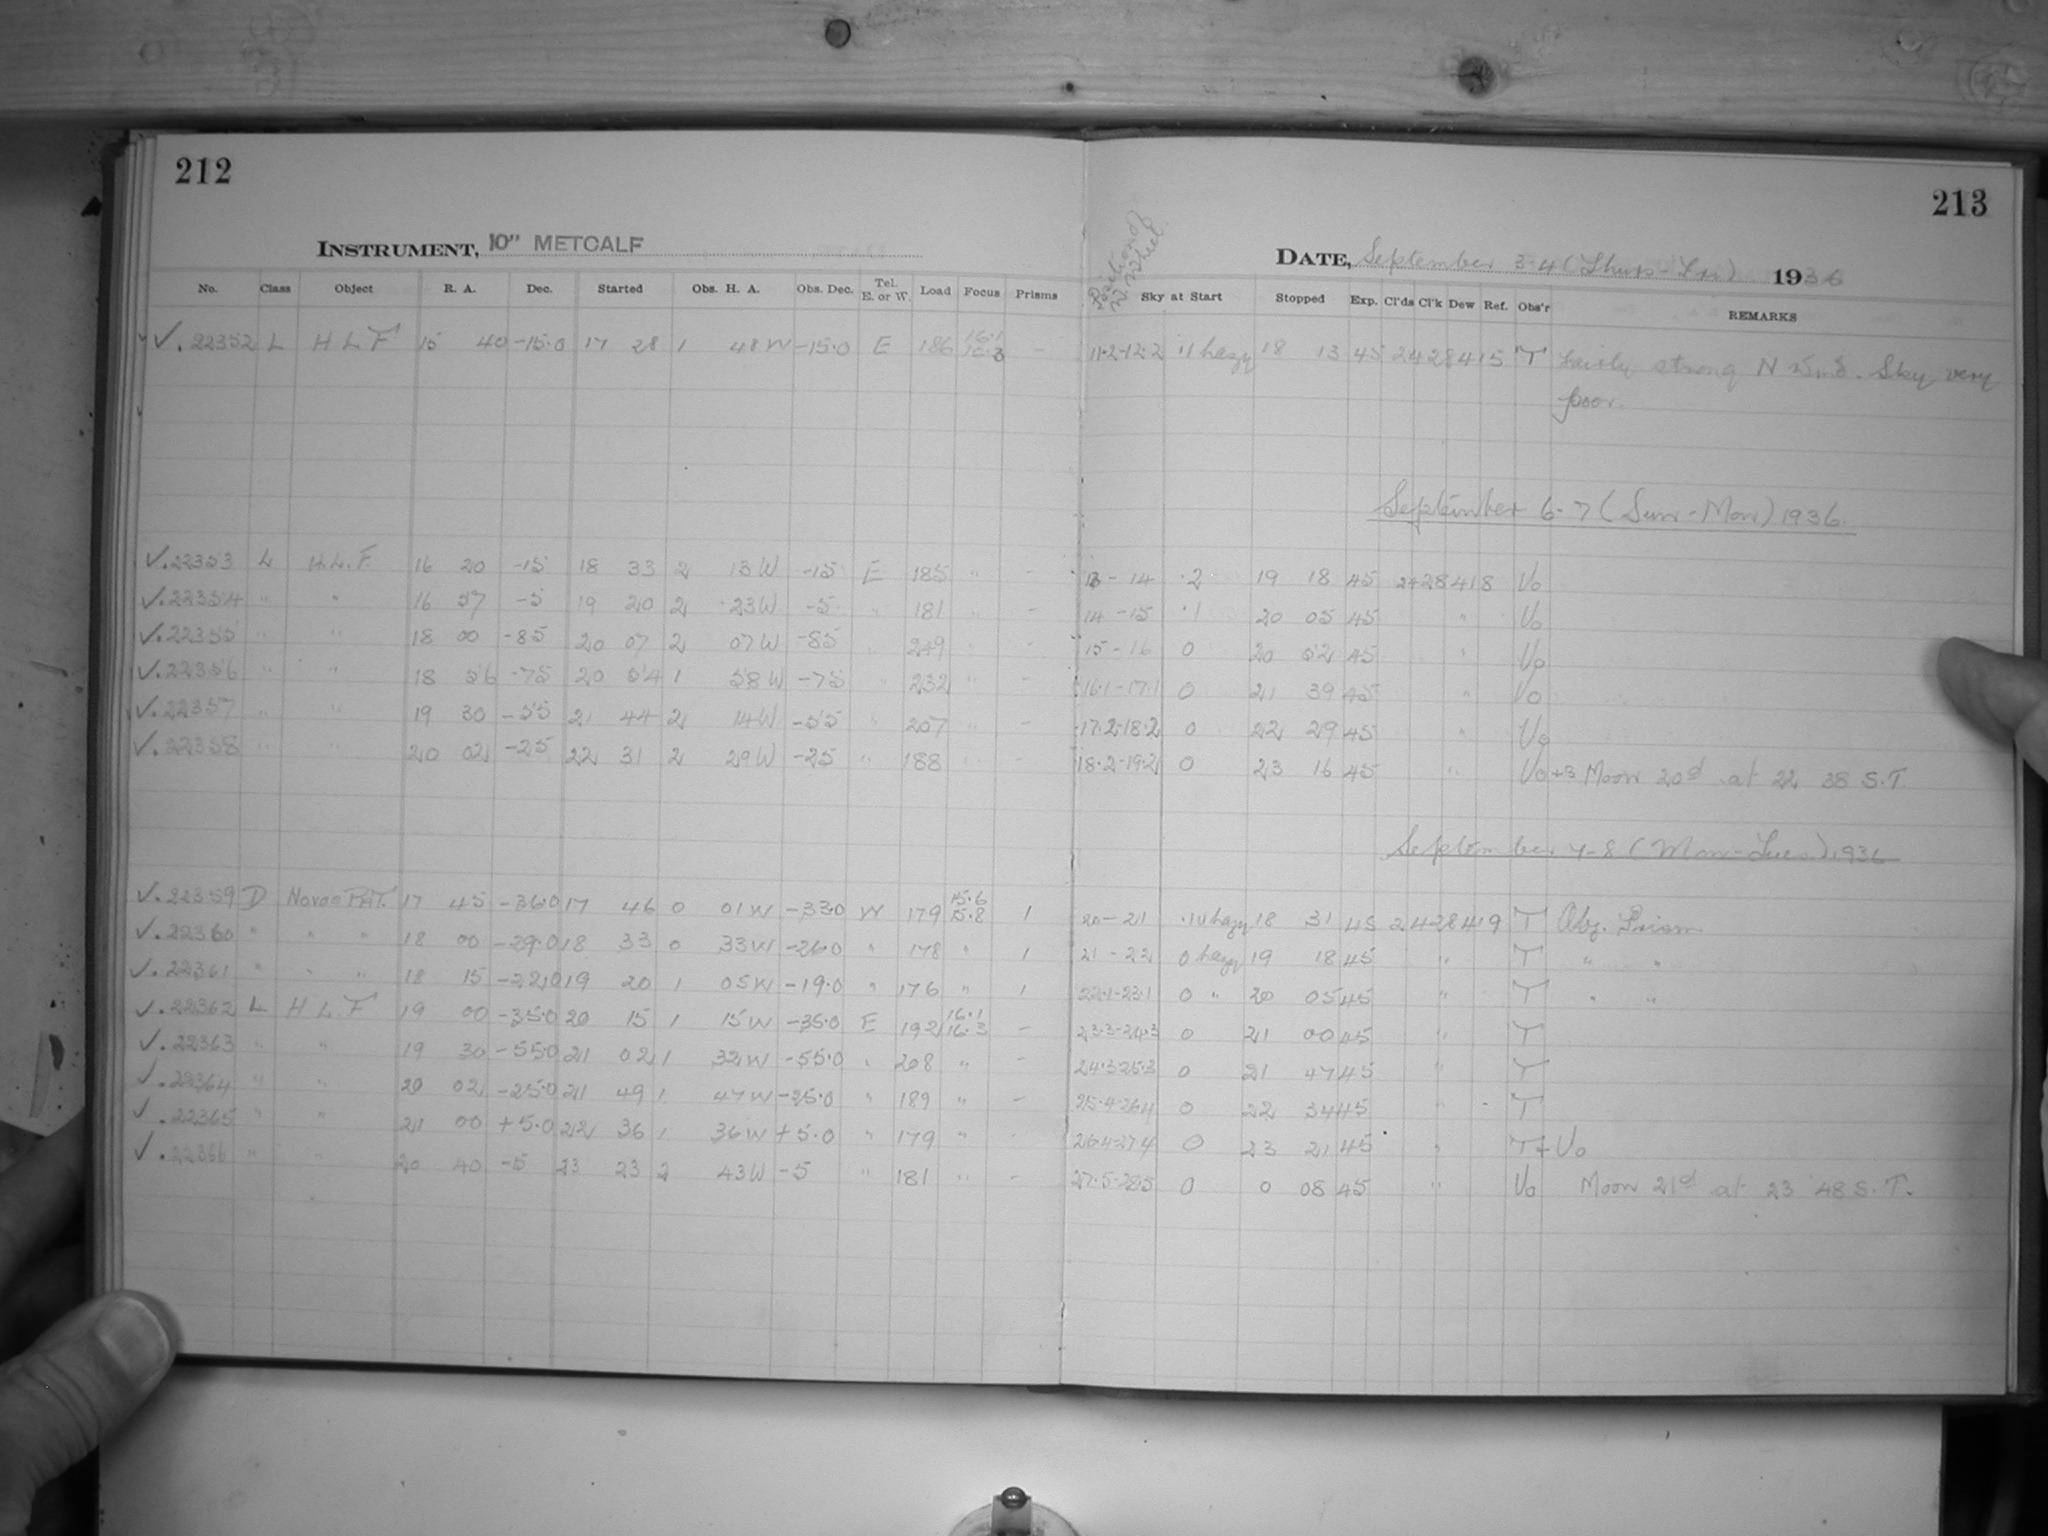 212
213
INSTRUMENT, 10" METCALF
DATE, September 3-4 (Thurs-Fri) 1936
No. Class Object R. A. Dec. Started Obs. H. A. Obs. Dec. Tel. E. or W. Load Focus Prisms Position of W. Wheel Sky at Start Stopped Exp. Cl'ds Cl'k Dew Ref. Obs'r REMARKS
✓. 22352 L H L F 15 40 -15.0 17 28 1 48 W -15.0 E 186 16.1 16.3 - 11.2-12.2 hazy 18 13 45 2428415 T Fairly strong N Wind. Sky very
poor.
September 6-7 (Sun-Mon) 1936.
✓. 22353 L H.L.F. 16 20 -15 18 33 2 13 W -15 E 185 " - 13-14 .2 19 18 45 2428418 Vo
✓. 22354 " " 16 57 -5 19 20 2 23W -5 " 181 " - 14-15 .1 20 05 45 " Vo
✓. 22355 " " 18 00 -85 20 07 2 07W -85 " 249 " - 15-16 0 20 52 45 " Vo
✓. 22356 " " 18 56 -75 20 54 1 58W -75 " 232 " - 16.1-17.1 0 21 39 45 " Vo
✓. 22357 " " 19 30 -55 21 44 2 14W -55 " 207 " - 17.2-18.2 0 22 29 45 " Vo
✓. 22358 " " 20 02 -25 22 31 2 29W -25 " 188 " - 18.2-19.2 0 23 16 45 " Vo+B Moon 20d at 22 38 S.T.
September 7-8 (Mon-Tues) 1936
✓. 22359 D Novae Pat. 17 45 -36.0 17 46 0 01W -33.0 W 179 15.6 15.8 1 20-21 hazy 18 31 45 2428419 T Obj. Prism
✓. 22360 " " " 18 00 -29.0 18 33 0 33W -26.0 " 178 " 1 21-22 0 hazy 19 18 45 " T " "
✓. 22361 " " " 18 15 -22.0 19 20 1 05W -19.0 " 176 " 1 22.1-23.1 0 " 20 05 45 " T " "
✓. 22362 L H L F 19 00 -35.0 20 15 1 15W -35.0 E 192 16.1 16.3 - 23.3-24.3 0 21 00 45 " T
✓. 22363 " " 19 30 -55.0 21 02 1 32W -55.0 " 208 " - 24.3-25.3 0 21 47 45 " T
✓. 22364 " " 20 02 -25.0 21 49 1 47W -25.0 " 189 " - 25.4-26.4 0 22 34 45 " T
✓. 22365 " " 21 00 +5.0 22 36 1 36W +5.0 " 179 " - 26.4-27.4 0 23 21 45 " T+Vo
✓. 22366 " " 20 40 -5 23 23 2 43W -5 " 181 " - 27.5-28.5 0 0 08 45 " Vo Moon 21d at 23 48 S.T.